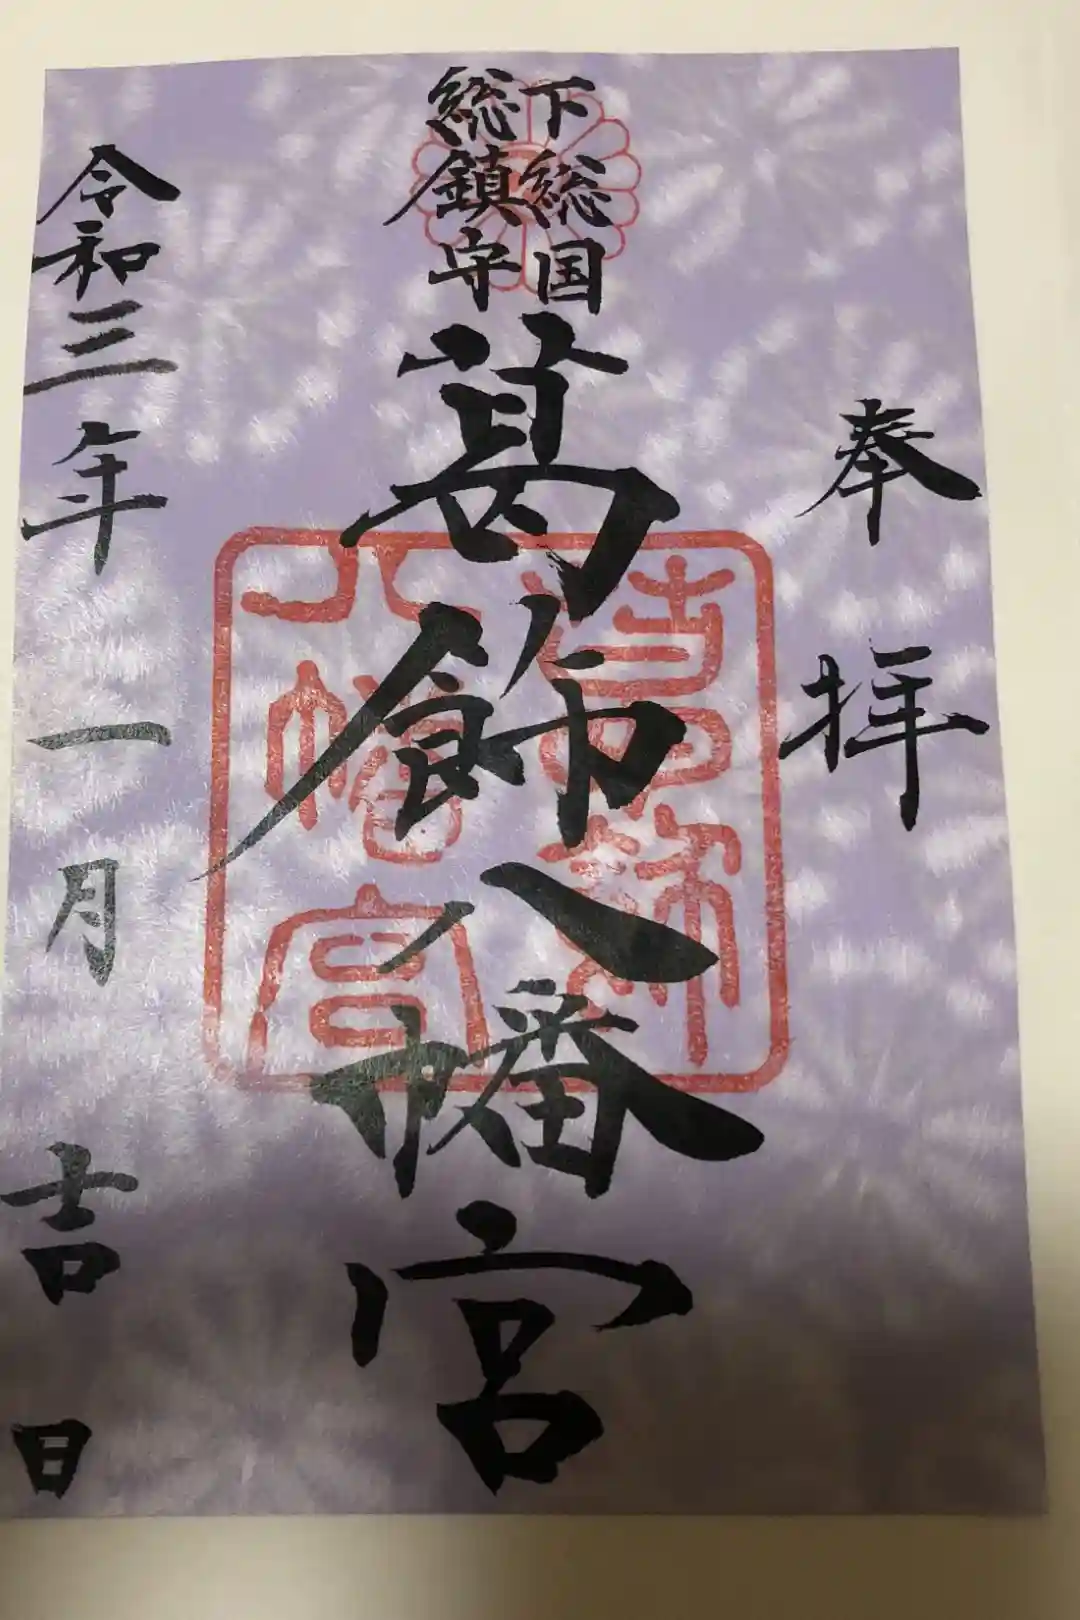 奉拝
下総国
総鎮守
葛飾八幡宮
葛飾
八幡宮
令和三年一月吉日